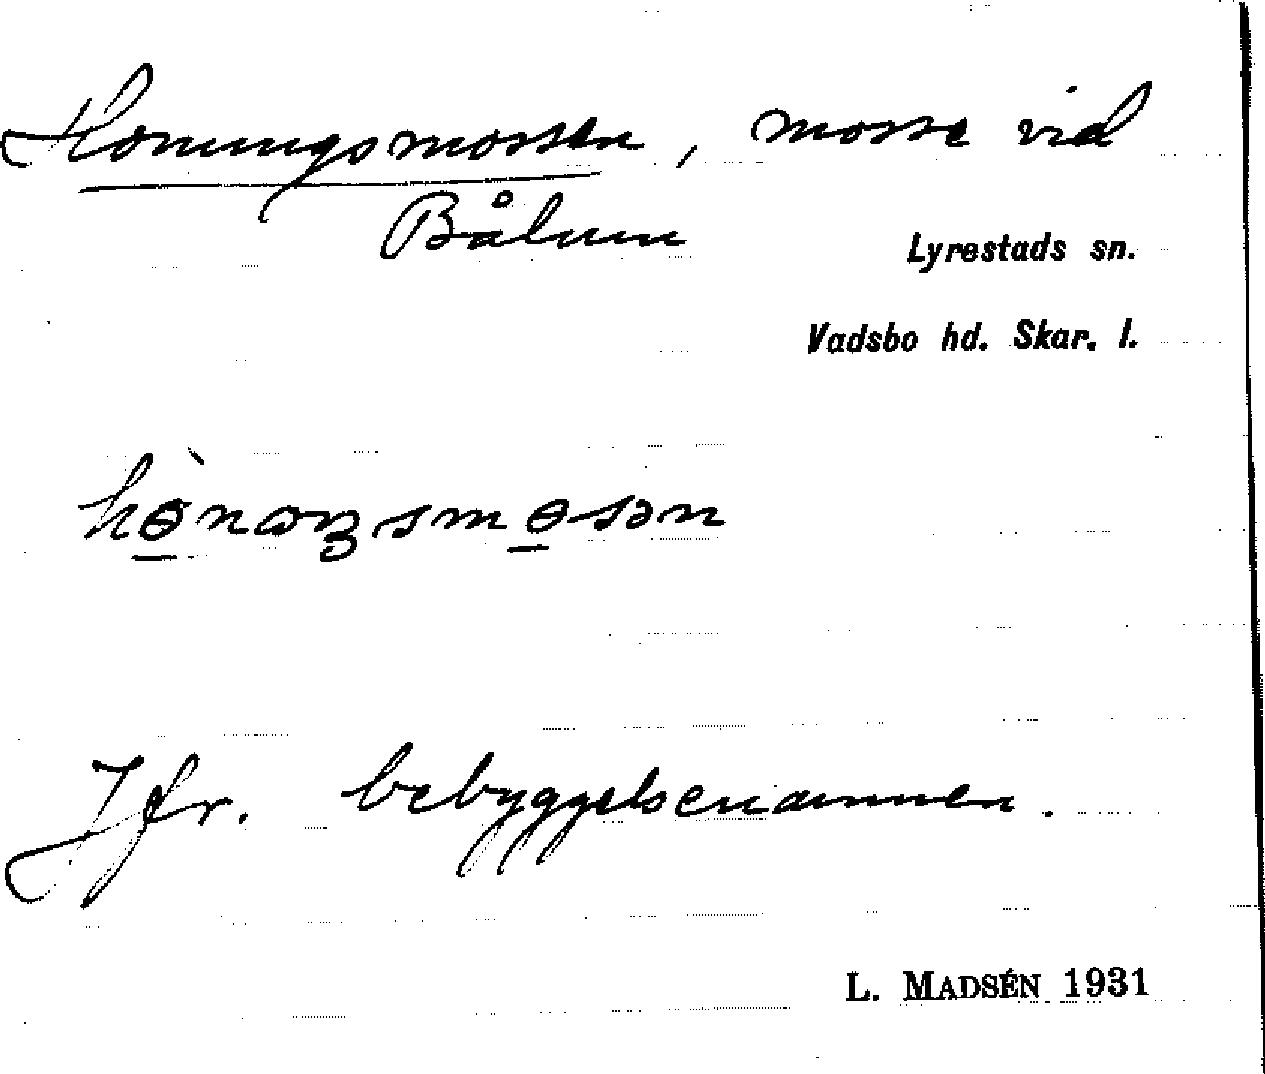 Honungsmossen, mosse vid
Bålum
Lyrestads sn.
Vadsbo hd. Skar. l.
Jfr. bebyggelsenamnen.
L. MADSÉN 1931